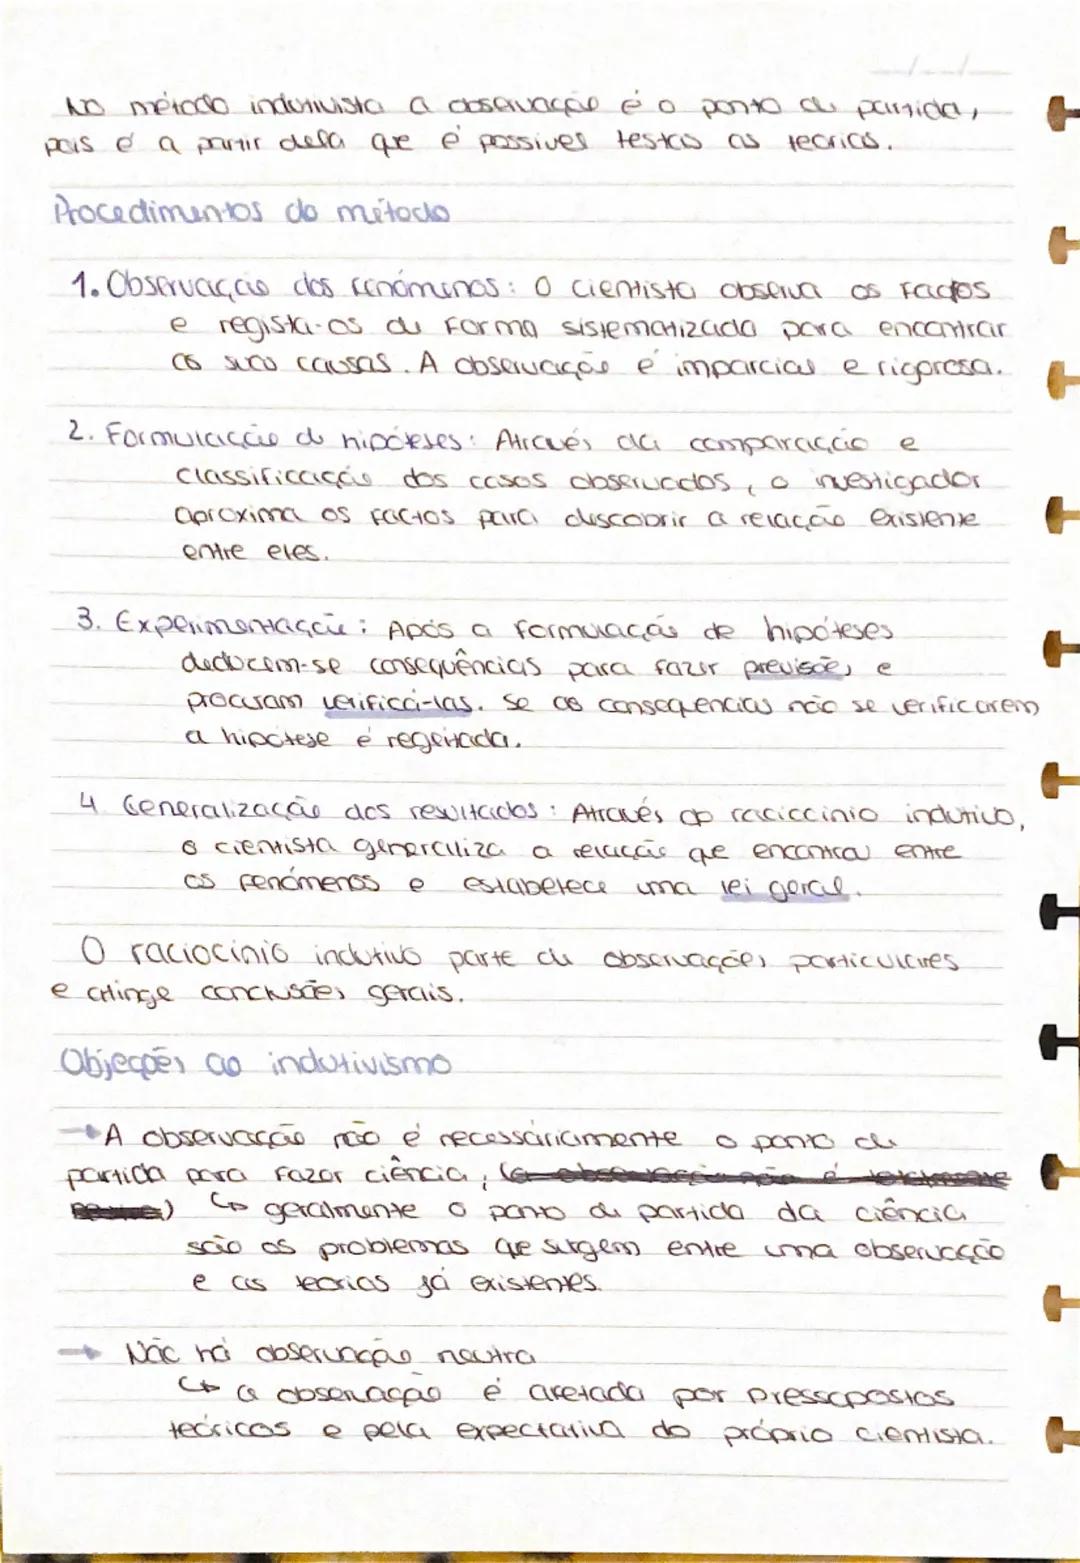 No método indutivista a observação é o ponto de partida,
pois é a partir dela que é possivel testas as teorias.
Procedimentos do método
1. Observação dos fenómenos: O cientista observa os factos
e regista-os de forma sistematizada para encontrar
as suas causas. A observação é imparcial e rigorosa.
2. Formulação de hipóteses: Através da comparação e
classificação dos casos observados, o investigador
aproxima os factos para descobrir a relação existente
entre eles.
3. Experimentação: Após a formulação de hipóteses
deduzem-se consequências para fazer previsões e
procuram verificá-las. Se as consequencias não se verificarem
a hipótese é regeitada.
4 Generalização dos resultados: Através do raciocinio indutivo,
o cientista generaliza a relação que encontra entre
os fenómenos e estabelece uma lei geral.
O raciocinio indutivo parte de observações particulares
e atinge conclusões gerais.
Objeções ao indutivismo
→ A observação não é necessáriamente o ponto de
partida para fazer ciência, (a observação não é
) ↳ geralmente o ponto de partida da ciência
são os problemas que surgem entre uma observação
e as teorias já existentes.
→ Não há observação neutra
↳ a observação é afetada por pressopostos
teóricos e pela expectativa do próprio cientista.